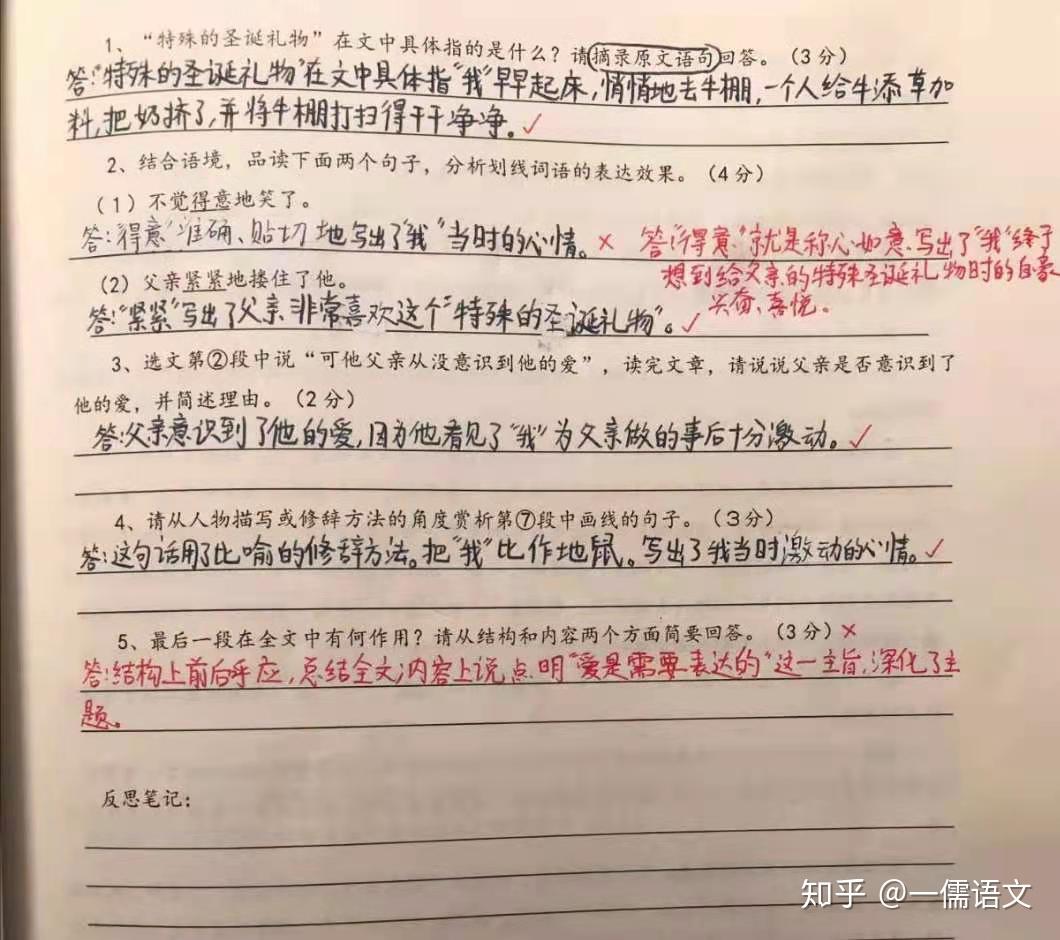 1、“特殊的圣诞礼物”在文中具体指的是什么？请摘录原文语句回答。（3分）
答:“特殊的圣诞礼物”在文中具体指“我”早早起床,悄悄地去牛棚,一个人给牛添草加
料,把奶挤了,并将牛棚打扫得干干净净。✓
2、结合语境，品读下面两个句子，分析划线词语的表达效果。（4分）
（1）不觉得意地笑了。
答:“得意”准确、贴切地写出了“我”当时的心情。×
答:“得意”就是称心如意,写出了“我”终于
想到给父亲的特殊圣诞礼物时的自豪、
兴奋、喜悦。
（2）父亲紧紧地搂住了他。
答:“紧紧”写出了父亲非常喜欢这个“特殊的圣诞礼物”。✓
3、选文第②段中说“可他父亲从没意识到他的爱”，读完文章，请说说父亲是否意识到了
他的爱，并简述理由。（2分）
答:父亲意识到了他的爱,因为他看见了“我”为父亲做的事后十分激动。✓
4、请从人物描写或修辞方法的角度赏析第⑦段中画线的句子。（3分）
答:这句话用了比喻的修辞方法。把“我”比作地鼠。写出了我当时激动的心情。✓
5、最后一段在全文中有何作用？请从结构和内容两个方面简要回答。（3分）×
答:结构上前后呼应,总结全文;内容上说点明“爱是需要表达的”这一主旨,深化了主
题。
反思笔记：
知乎 @一儒语文